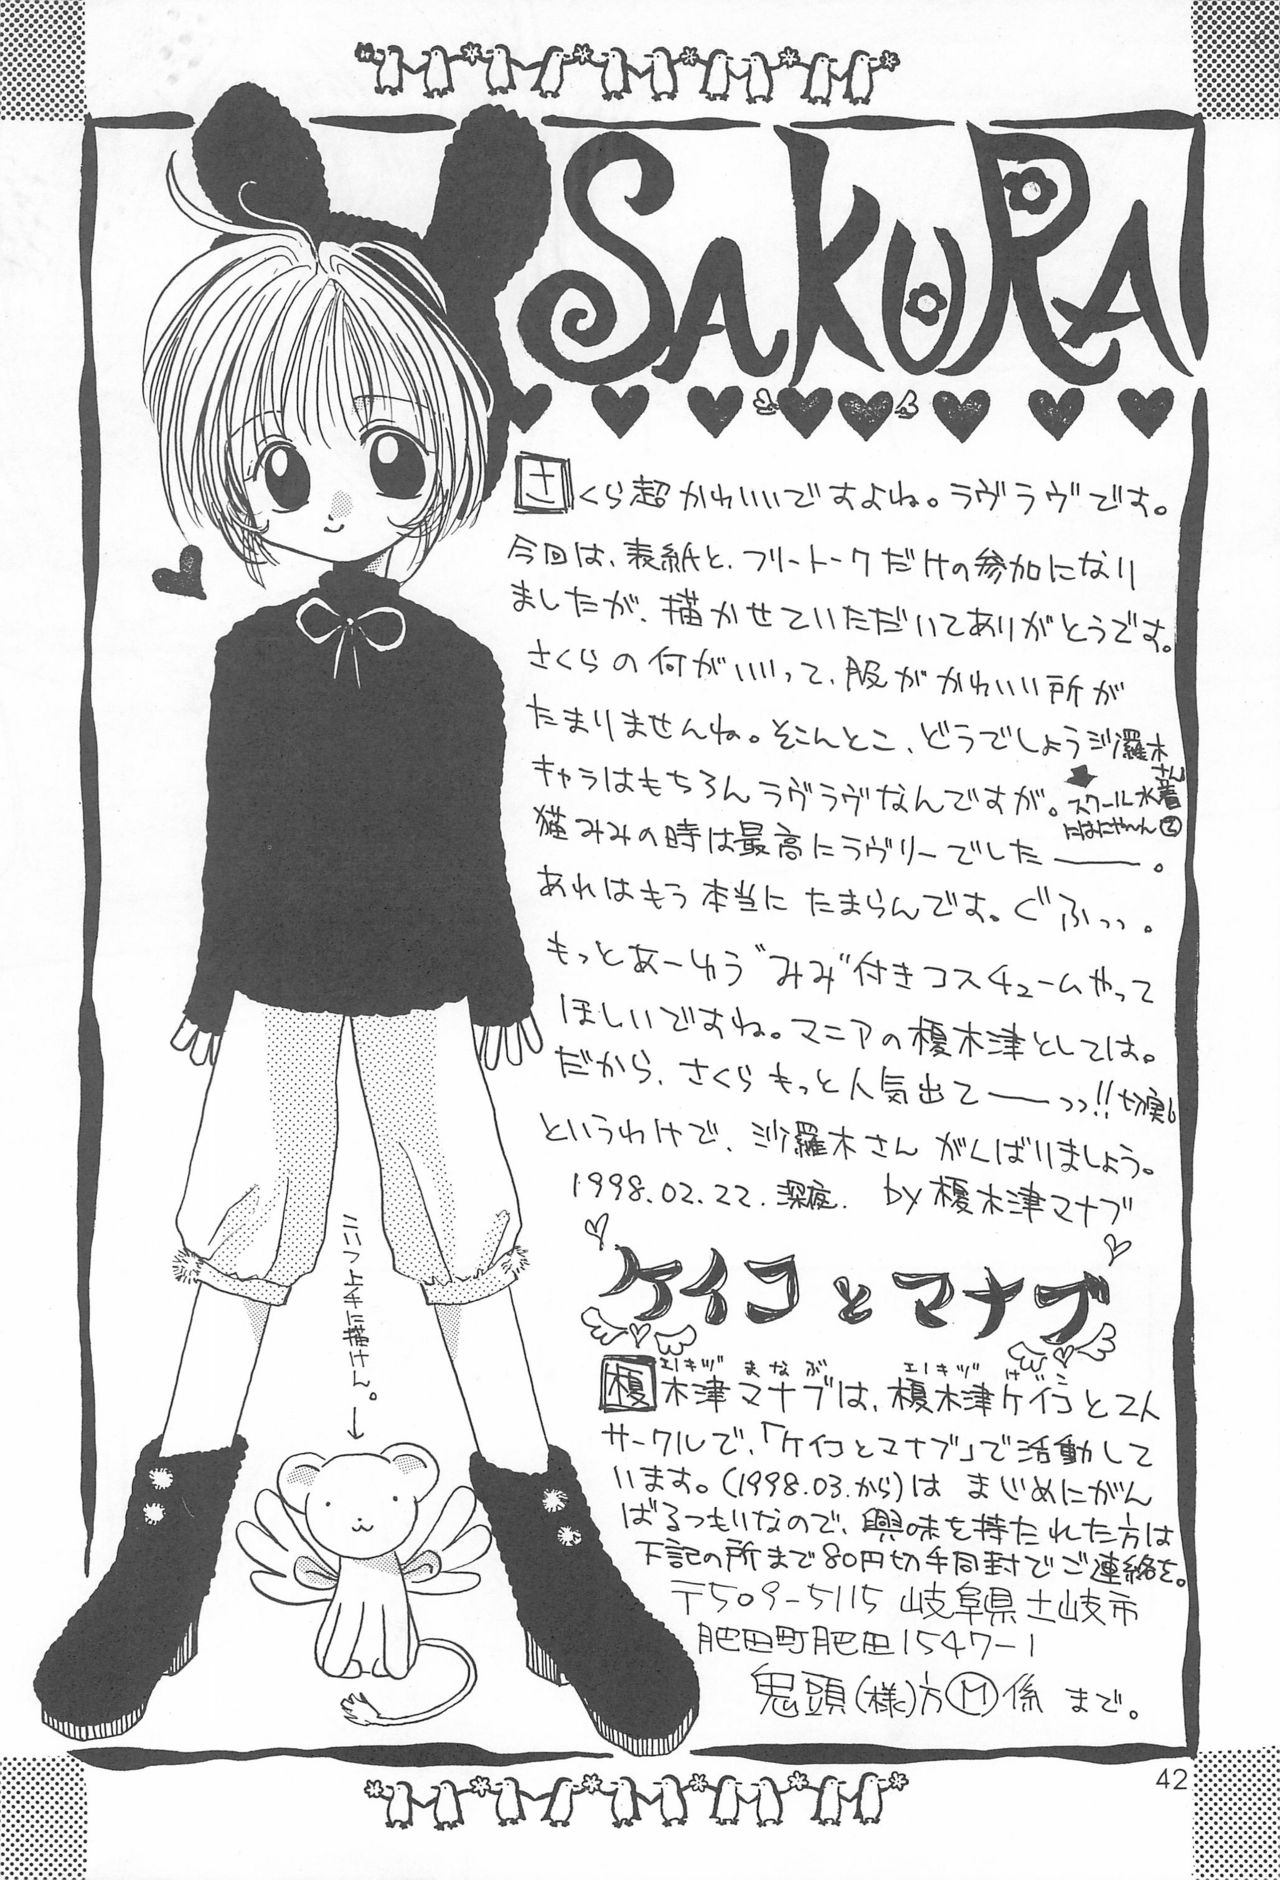 SAKURA
さくら超かわいいですよね。ラヴラヴです。
今回は、表紙と、フリートークだけの参加になり
ましたが、描かせていただいてありがとうです。
さくらの何がいいって、服がかわいい所が
たまりませんね。そこんとこ、どうでしょう沙羅木
さん
キャラはもちろんラヴラヴなんですが。
スクール水着
にはにゃ〜ん
猫みみの時は最高にラヴリーでしたーー。
あれはもう本当にたまらんです。ぐふっっ。
もっとあーゆう"みみ"付きコスチュームやって
ほしいですね。マニアの榎木津としては。
だから、さくらもっと人気出てーーっっ!!切実
というわけで、沙羅木さんがんばりましょう。
1998.02.22.深夜. by榎木津マナブ
こいつ上手に描けん。
ケイコとマナブ
エノキヅ まなぶ エノキヅ けいこ
榎木津マナブは、榎木津ケイコと2人
サークルで、「ケイコとマナブ」で活動して
います。(1998.03.から)は まじめにがん
ばるつもりなので、興味を持たれた方は
下記の所まで80円切手同封でご連絡を。
〒509-5115 岐阜県土岐市
肥田町肥田1547-1
鬼頭(様)方Ⓜ係 まで。
42